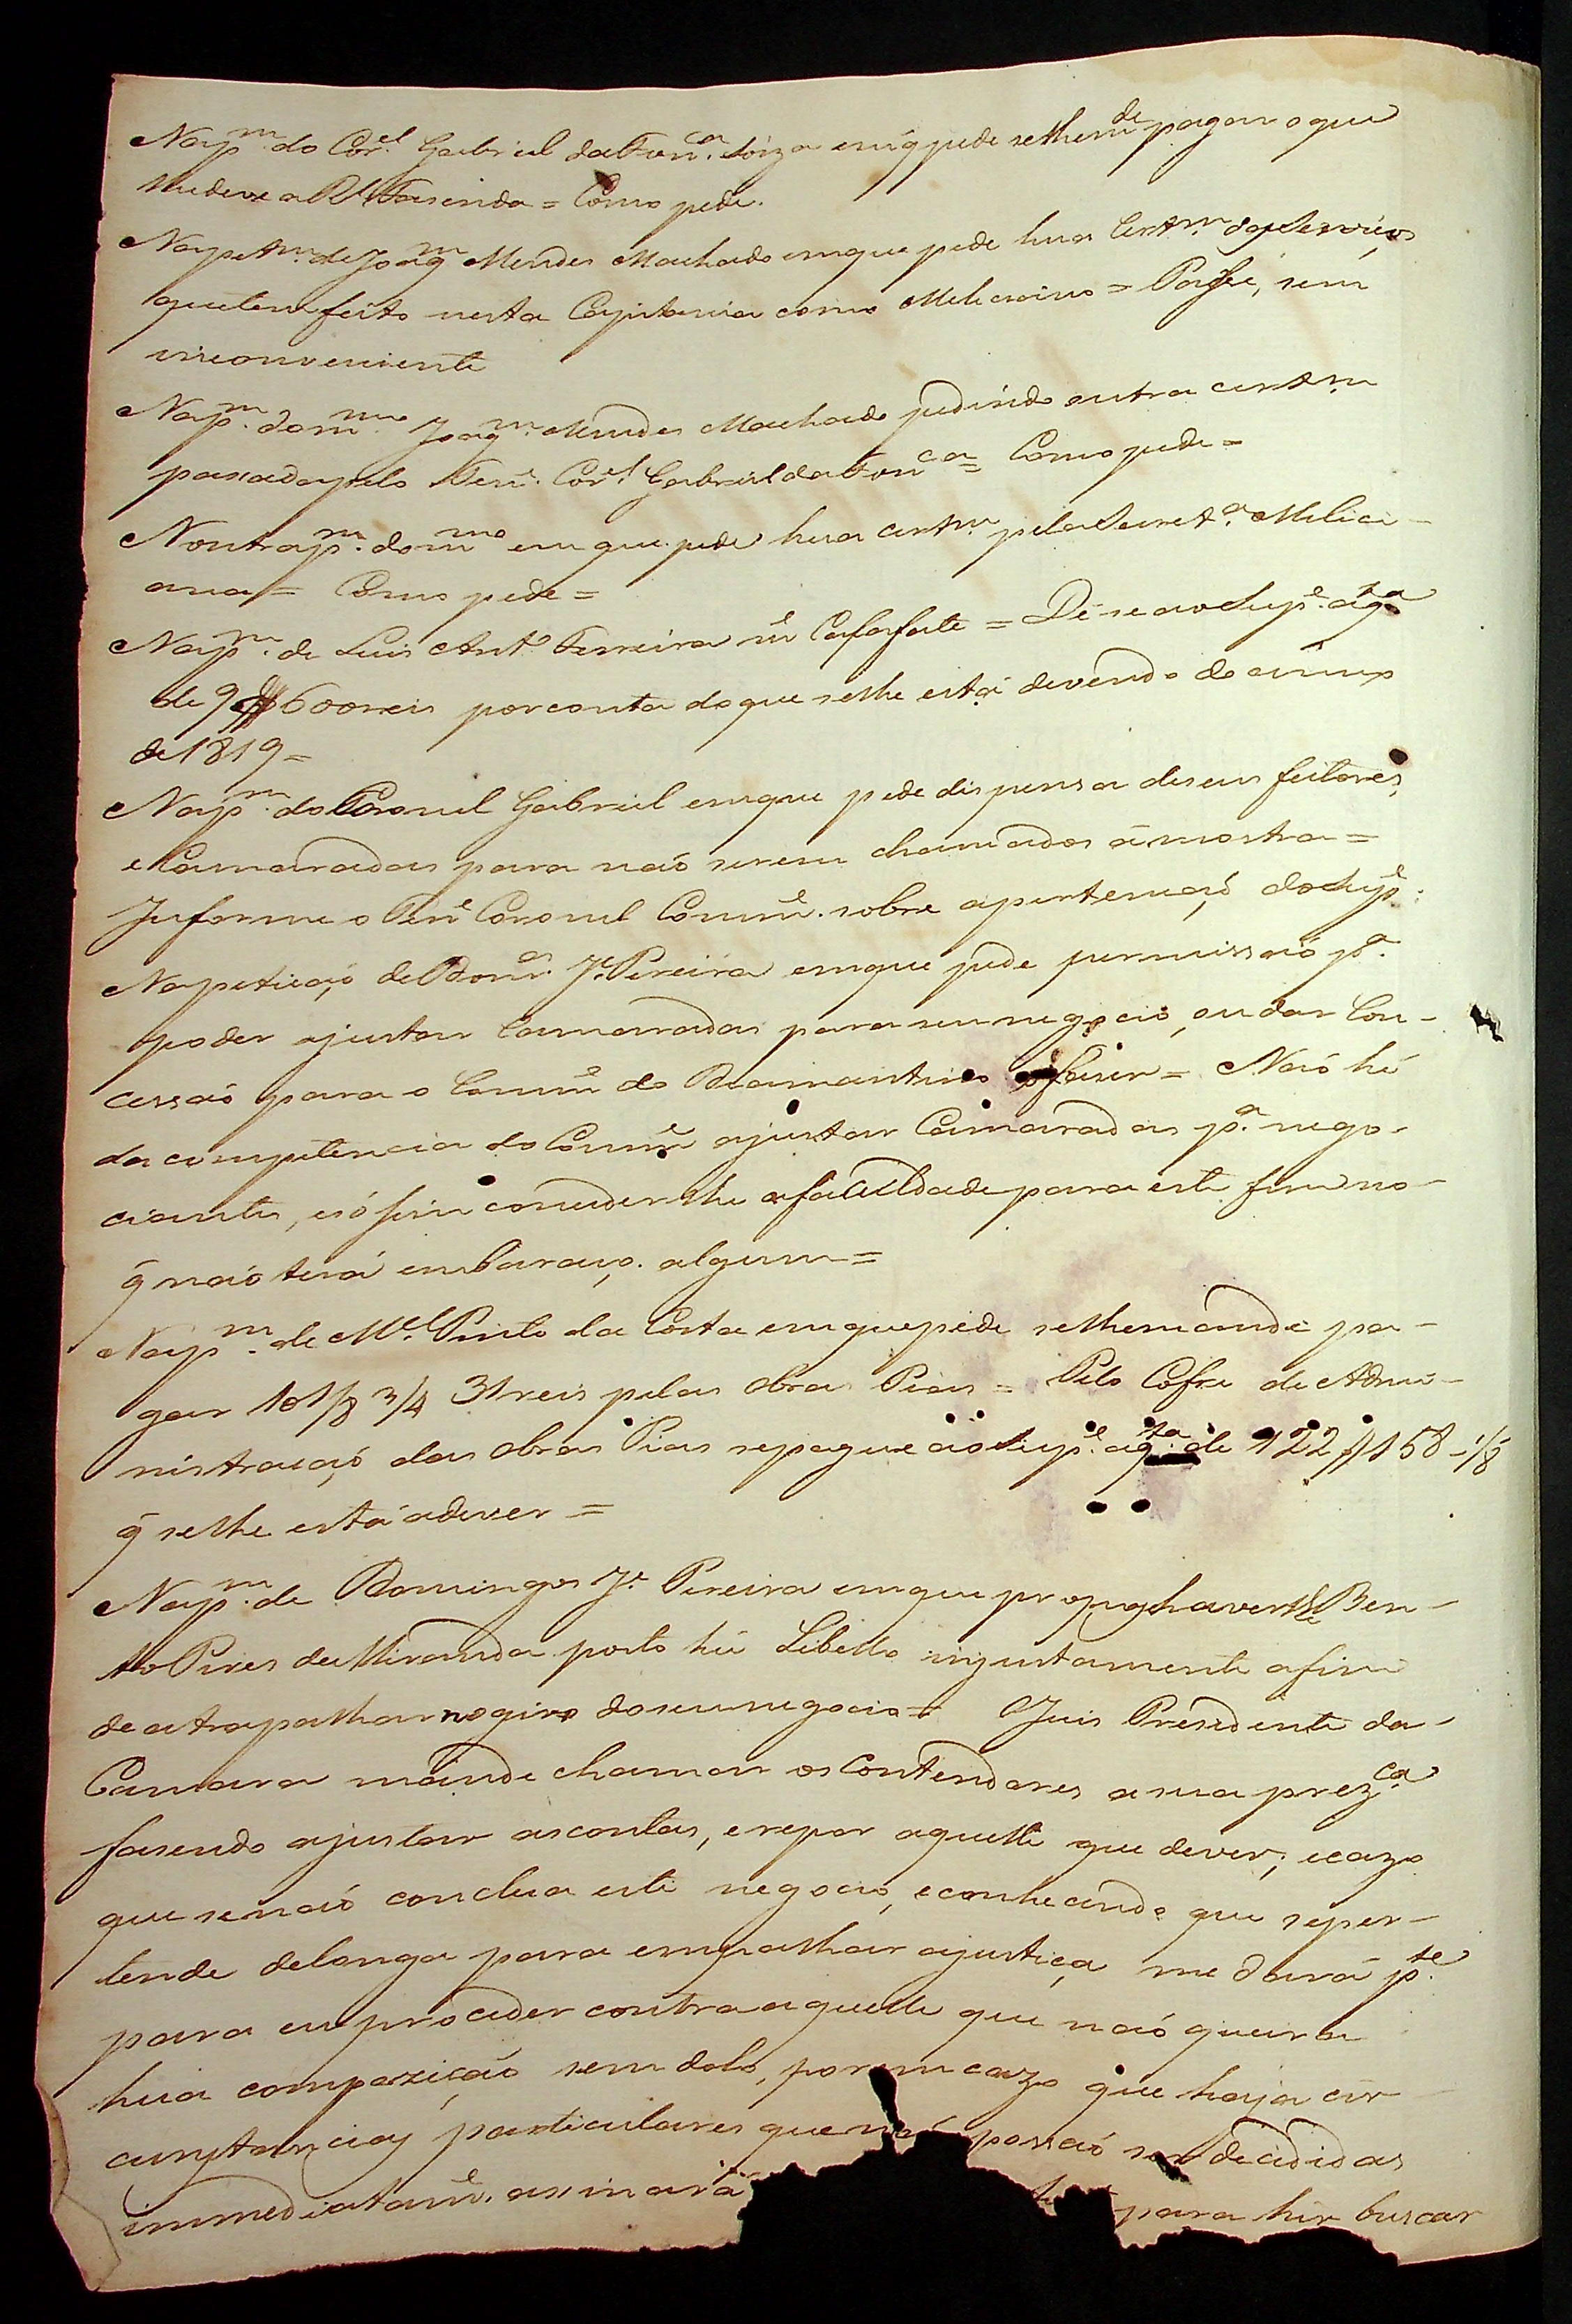 Na p.^m do Cor.^el Gabriel da Fon.^ca Soiza em q̃ pede se lhe m.^de pagar o que
lhe deve a R.^l Fasenda = Como pede.
Na pet.^m de Joaq.^m Mendes Machado em que pede hua Cert.^m dos serviços
que tem feito nesta Capitania como Meliciano = Passe, sem
inconveniente
Na p.^m do m.^mo Joaq.^m Mendes Machado pedindo outra cert.^m
passada pelo Ten.^e Cor.^el Gabriel da Fon^ca = Como pede =
N'outra p.^m do m^mo em que pede hua cert.^m pela Secret.^a Milici-
ana = Como pede =
Na p.^m de Luis Ant.^o Ferreira = Dê-se ao Sup.^e a q.^ta
de 9$600 reis por conta do que se lhe está devendo do anno
de 1819 =
Na p.^m do Coronel Gabriel em que pede dispensa de seus feitores,
e Camaradas para naõ serem chamados á mostra =
Informe o Ten.^e Coronel Comm.^e sobre a pertençaõ do Sup.^e
Na petiçaõ de Dom.^os J.^e Pereira em que pede permissaõ p.^a
poder ajustar Camaradas para seu negocio, ou dar Con-
cessaõ para o Comm.^e do Diamantino o faser = Naõ hé
da competencia do Comm.^e ajustar Camaradas p.^a nego-
ciantes, e só sim conceder-lhe a faculdade para este fim no
q̃ naõ terá embaraço algum =
Na p.^m de M.^el Pinto da Costa em que pede se lhe mande pa-
gar 101/8 3/4 31 reis pelas obras Pias = Pelo Cofre de Admi-
nistraçaõ das obras Pias se pague ao Sup.^e a q.^ta de 122$158 1/8
q̃ se lhe está a dever =
Na p.^m de Domingos J.^e Pereira em que propoz haver-lhe Ben-
to Pires de Miranda posto hũ Libello injustamente a fim
de atrapalhar no giro do seu negocio = O Juis Presidente da
Camara mande chamar os Contendores a sua prez.^ca
fasendo ajustar as contas, e repor aquelle que dever; e cazo
que se naõ conclua este negocio, e conhecendo que se per-
tende delonga para empalhar a justiça me dará p.^te
para eu proceder contra aquelle que naõ queira
hua compozicaõ sem dolo, porem cazo que haja cir
cunstancias particulares que naõ possaõ ser decididas
immediatam.^e assinará para hir buscar